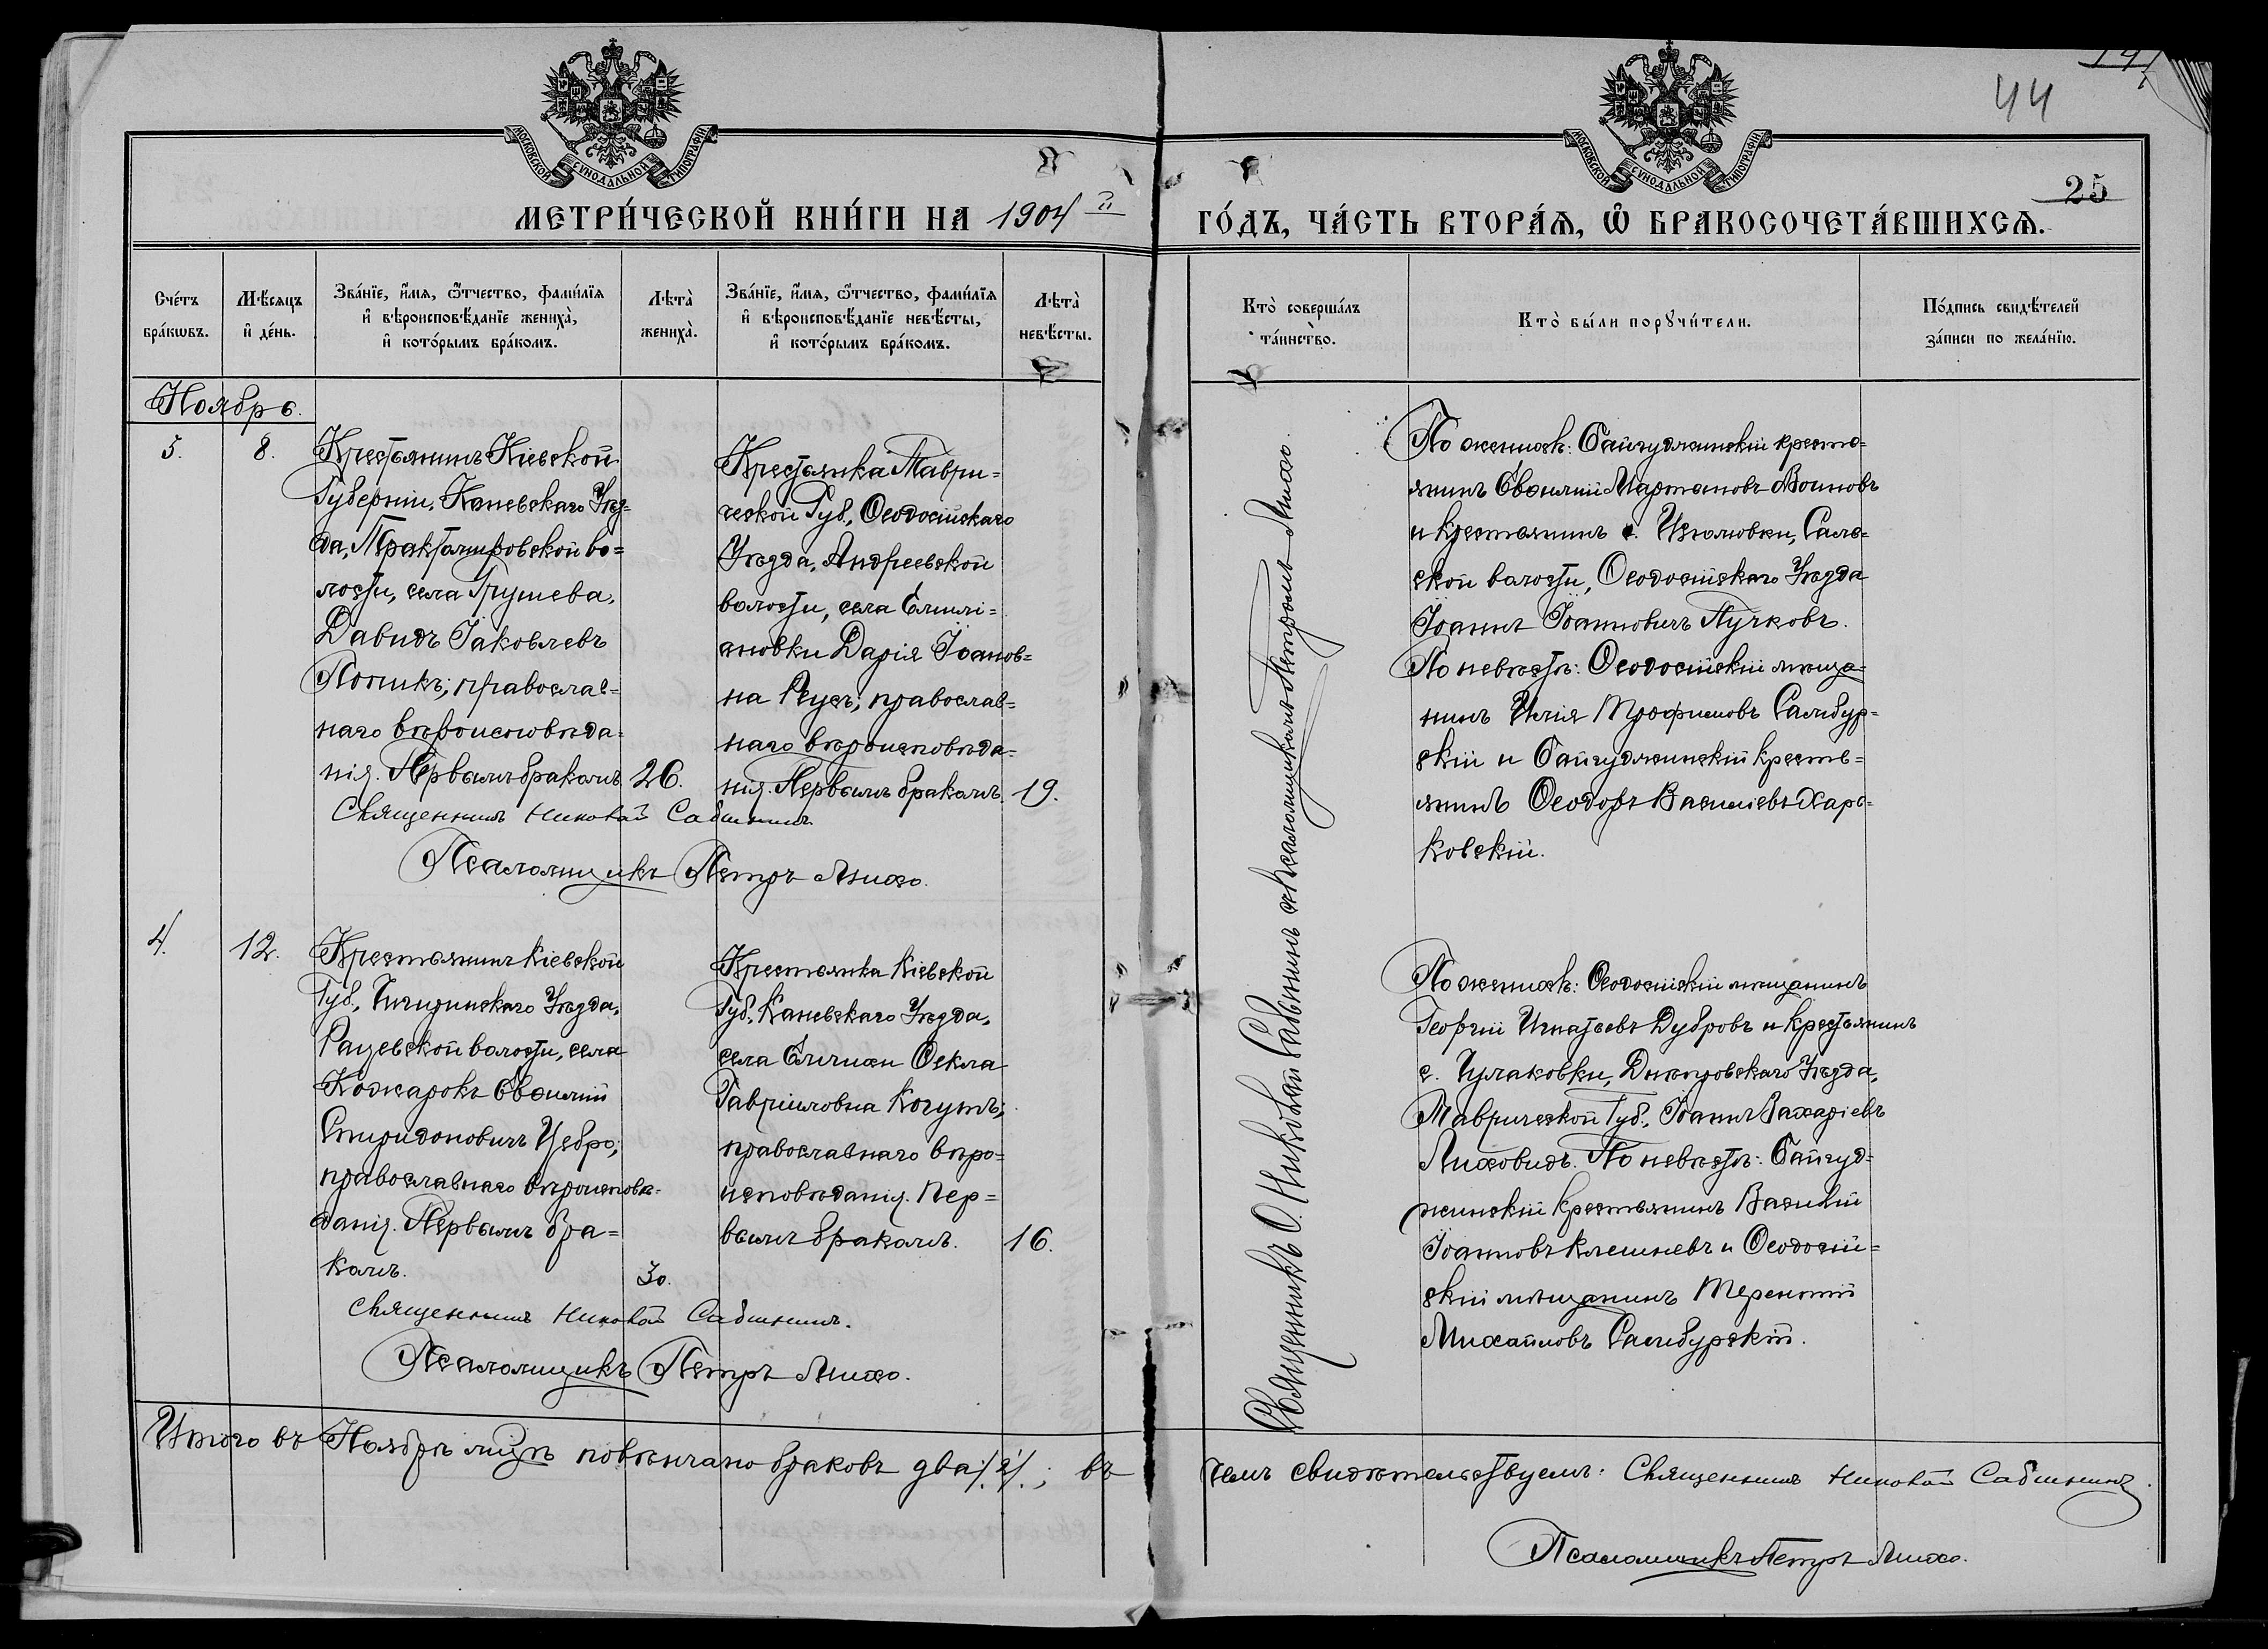 44
25
МОСКОВСКОЙ СѴНОДАЛЬНОЙ ТИПОГРАФІИ
МОСКОВСКОЙ СѴНОДАЛЬНОЙ ТИПОГРАФІИ
МЕТРИ́ЧЕСКОЙ КНИ́ГИ НА 1904 й ГО́ДЪ, ЧА́СТЬ ВТОРА́Ѧ, Ѽ БРАКОСОЧЕТА́ВШИХСѦ.
Сче́тъ
бра́кѡвъ.
Мѣ́сяцъ
и҆ де́нь.
Зва́нїе, и҆́мя, ѻ҆́тчество, фамі́лїя
и҆ вѣроисповѣ́данїе жениха̀,
и҆ кото́рымъ бра́комъ.
Лѣта̀
жениха̀.
Зва́нїе, и҆́мя, ѻ҆́тчество, фамі́лїя
и҆ вѣроисповѣ́данїе невѣ́сты,
и҆ кото́рымъ бра́комъ.
Лѣта̀
невѣ́сты.
Кто̀ соверша́лъ
та́инство.
Кто̀ бы́ли порꙋчи́тели.
По́дпись свидѣ́телей
за́писи по жела́нїю.
Ноябрь.
3.
8.
Крестьянинъ Кіевской
Губерніи, Каневскаго Уѣз=
да, Трактомировской во=
лости, села Грушева,
Давидъ Іаковлевъ
Попикъ; православ=
наго вѣроисповѣда=
нія. Первымъ бракомъ.
26.
Крестьянка Таври=
ческой Губ., Ѳеодосійскаго
Уѣзда, Андреевской
волости, села Емилі=
ановки Дарія Іоанов=
на Реусъ; православ=
наго вѣроисповѣда=
нія. Первымъ бракомъ.
19.
Священникъ Николай Сабининъ
Псаломщикъ Петръ Михо.
Священникъ О. Николай Сабининъ съ псаломщикомъ Петромъ Михо.
По женихѣ: Байгуджинскій кресть=
янинъ Евфимій Мартоновъ Воиновъ
и крестьянинъ с. Изюмовки, Саль=
ской волости, Ѳеодосійскаго Уѣзда
Іоаннъ Іоанновичъ Пучковъ.
По невѣстѣ: Ѳеодосійскій мѣща=
нинъ Илія Трофимовъ Самбур=
скій и Байгуджинскій кресть=
янинъ Ѳеодоръ Василіевъ Харь=
ковскій.
4.
12.
Крестьянинъ Кіевской
Губ., Чигиринскаго Уѣзда,
Рацевской волости, села
Кожарокъ Евфимій
Спиридоновичъ Цебро;
православнаго вѣроисповѣ=
данія. Первымъ бра=
комъ.
30.
Крестьянка Кіевской
Губ., Каневскаго Уѣзда,
села Ѳекла
Гавріиловна Когутъ;
православнаго вѣро=
исповѣданія. Пер=
вымъ бракомъ.
16.
Священникъ Николай Сабининъ.
Псаломщикъ Петръ Михо.
По женихѣ: Ѳеодосійскій мѣщанинъ
Георгій Игнатьевъ Дубровъ и крестьянинъ
с. Чулаковки, Днѣпровскаго Уѣзда,
Таврической Губ., Іоаннъ Захаріевъ
Лиховидъ. По невѣстѣ: Байгуд=
жинскій крестьянинъ Василій
Іоанновъ Клешневъ и Ѳеодосій=
скій мѣщанинъ Терентій
Михаиловъ Самбурскій.
Итого въ Ноябрѣ мцѣ повѣнчано браковъ два /.2/.; въ чемъ свидѣтельствуемъ: Священникъ Николай Сабининъ.
Псаломщикъ Петръ Михо.